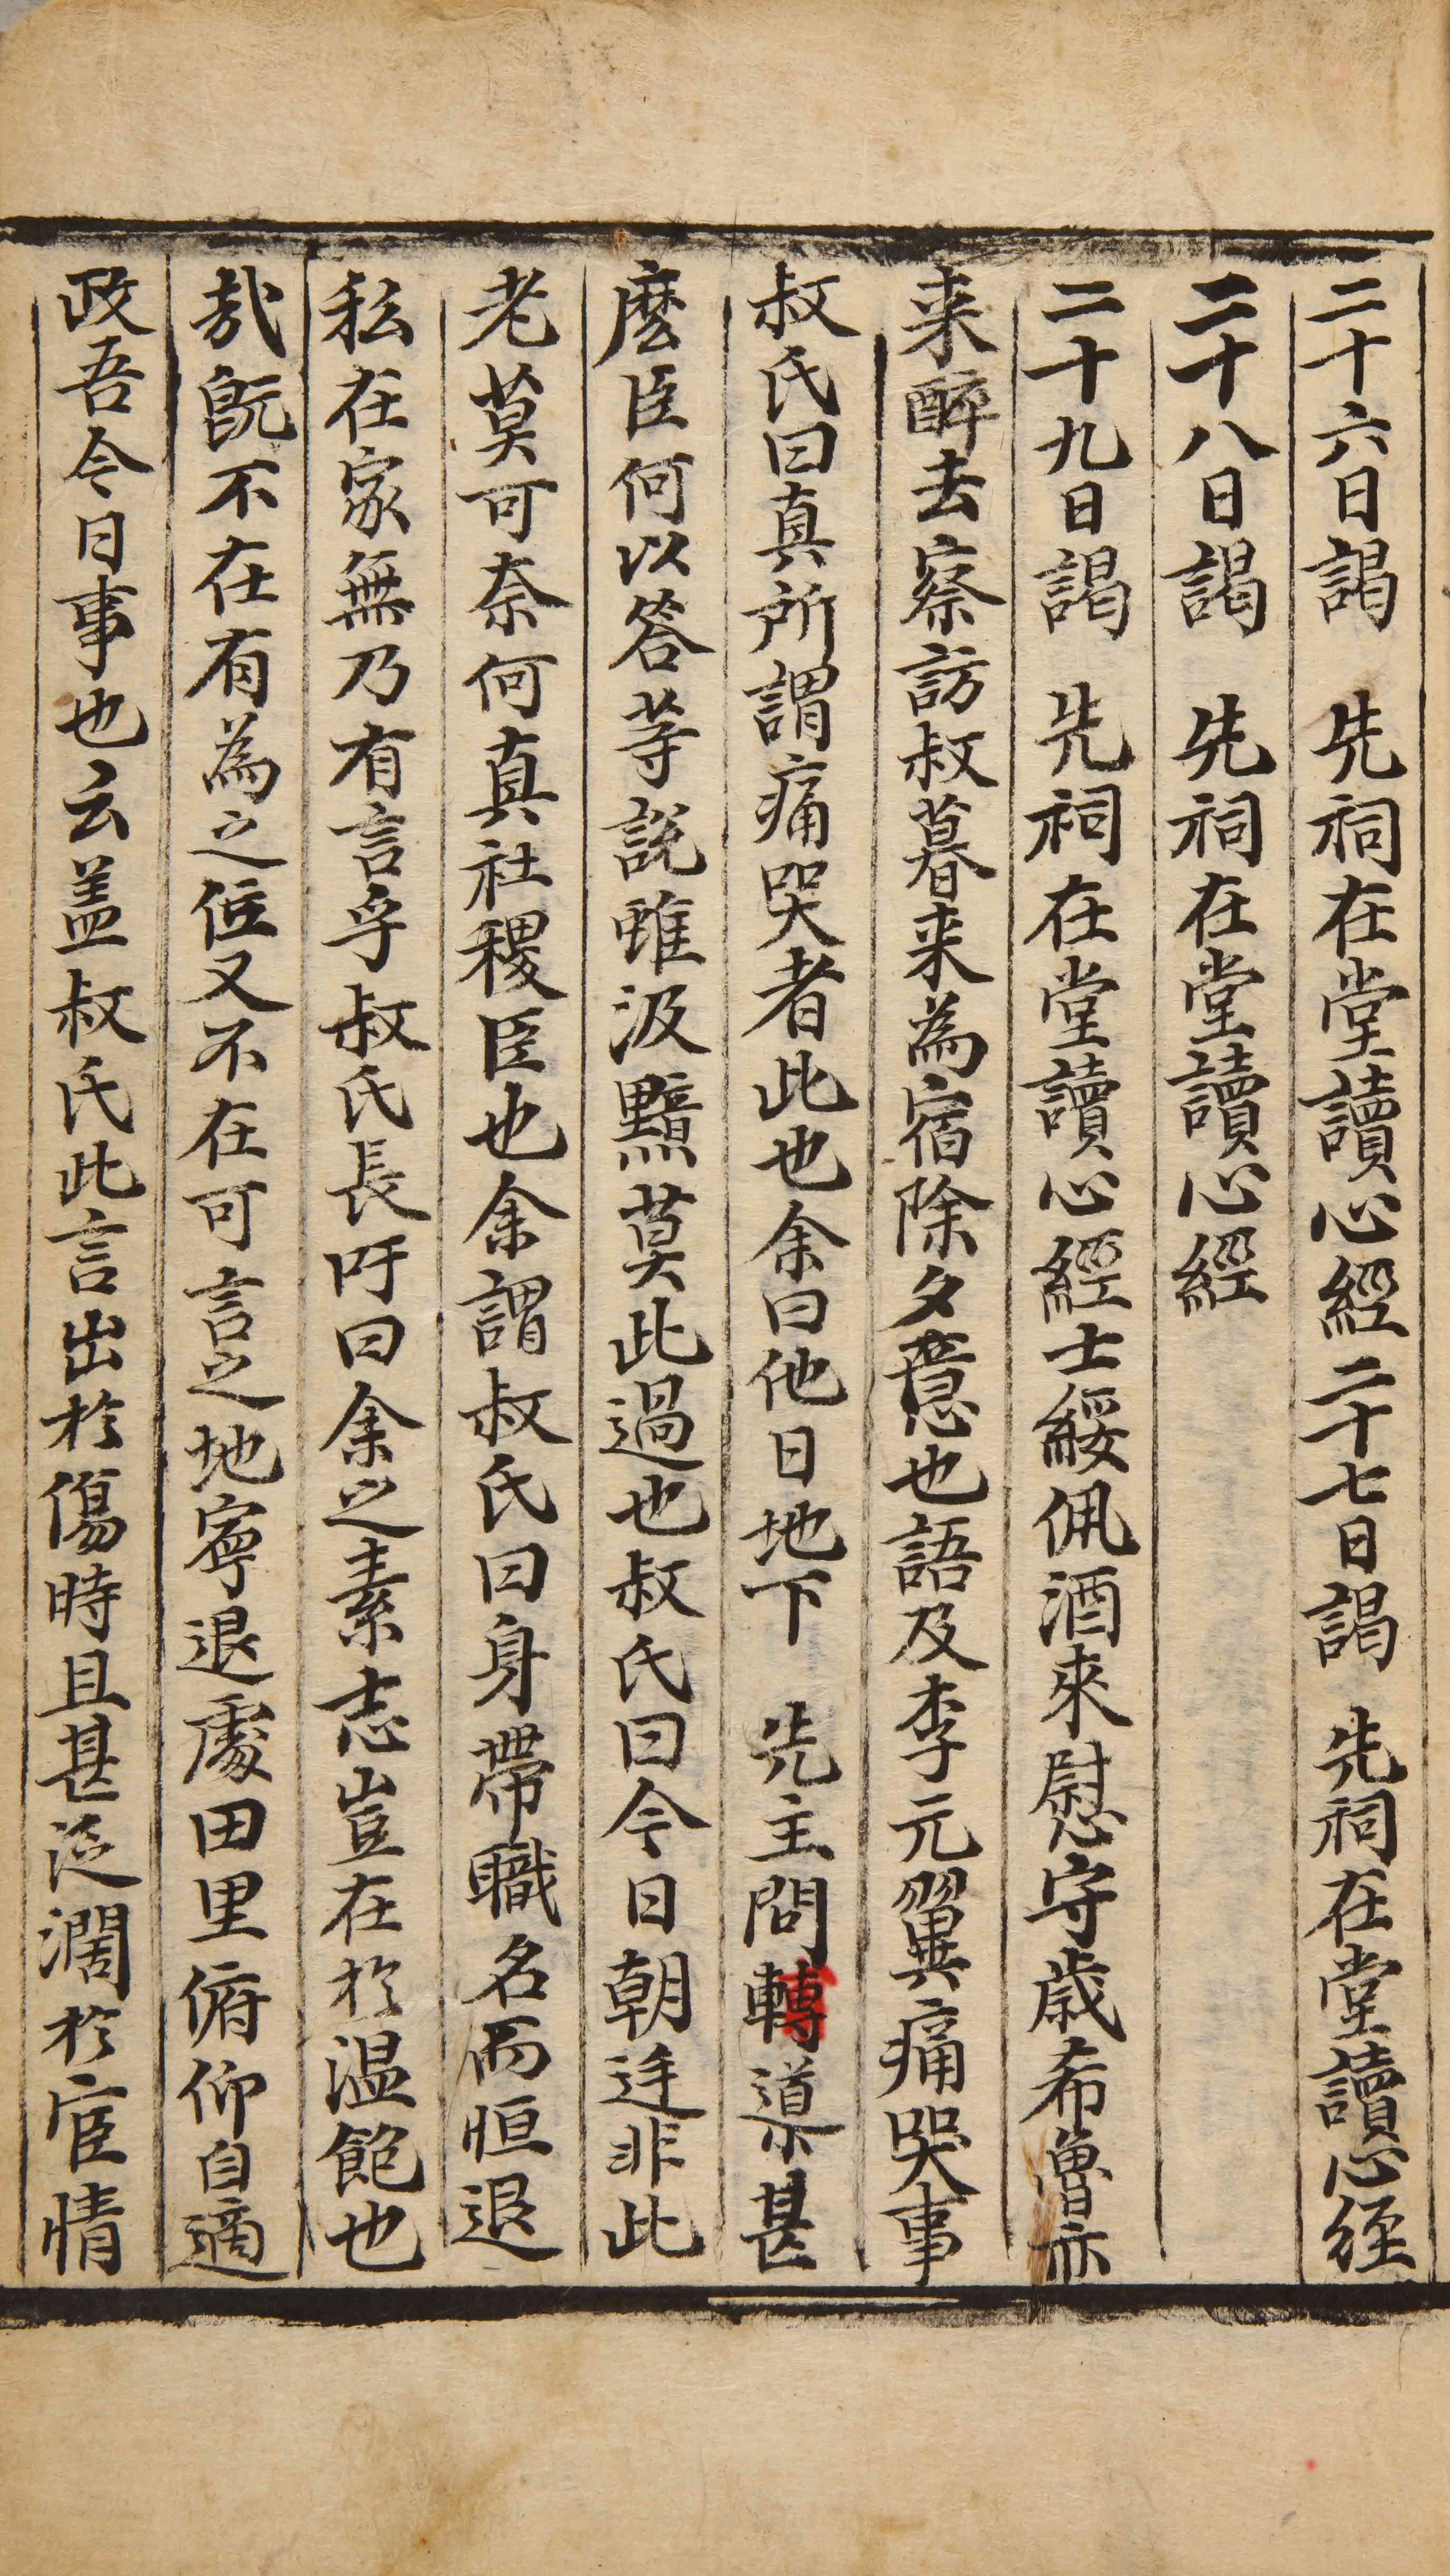 二十六日謁　先祠在堂讀心經二十七日謁　先祠在堂讀心経
二十八日謁　先祠在堂讀心經
二十九日謁　先祠在堂讀心經士綏佩酒來慰守歲希魯亦
来醉去察訪叔暮来為宿除夕意也語及李元翼痛哭事
叔氏曰真所謂痛哭者此也余曰他日地下　先主問轉導甚
麽臣何以答等說雖汲黯莫此過也叔氏曰今日朝廷非此
老莫可奈何真社稷臣也余謂叔氏曰身帶職名而恒退
私在家無乃有言乎叔氏長吁曰余之素志豈在於温飽也
哉既不在有為之位又不在可言之地寧退處田里俯仰自適
政吾今日事也云盖叔氏此言出於傷時且甚迂濶於宦情